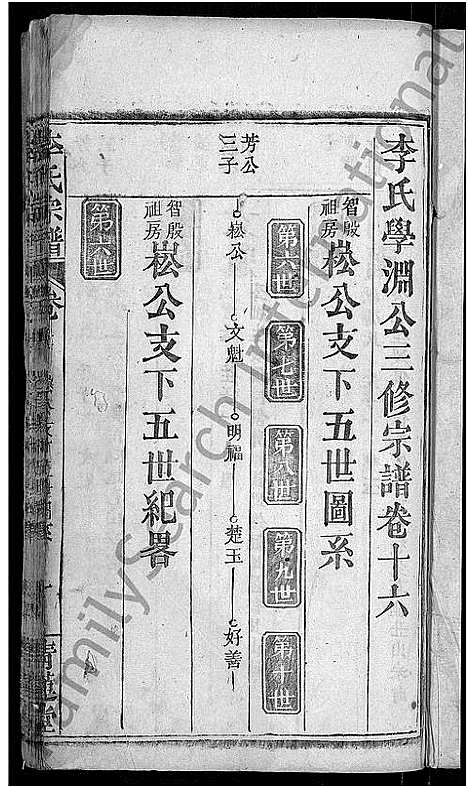 李氏學淵公三修宗譜卷十六
智殿祖房崧公支下五世圖系
第六世 第七世 第八世 第九世 第十世
芳公三子 崧公 文魁 明福 楚玉 好善
智殿祖房崧公支下五世紀畧
第六世
李氏宗譜 卷
FamilySearch International